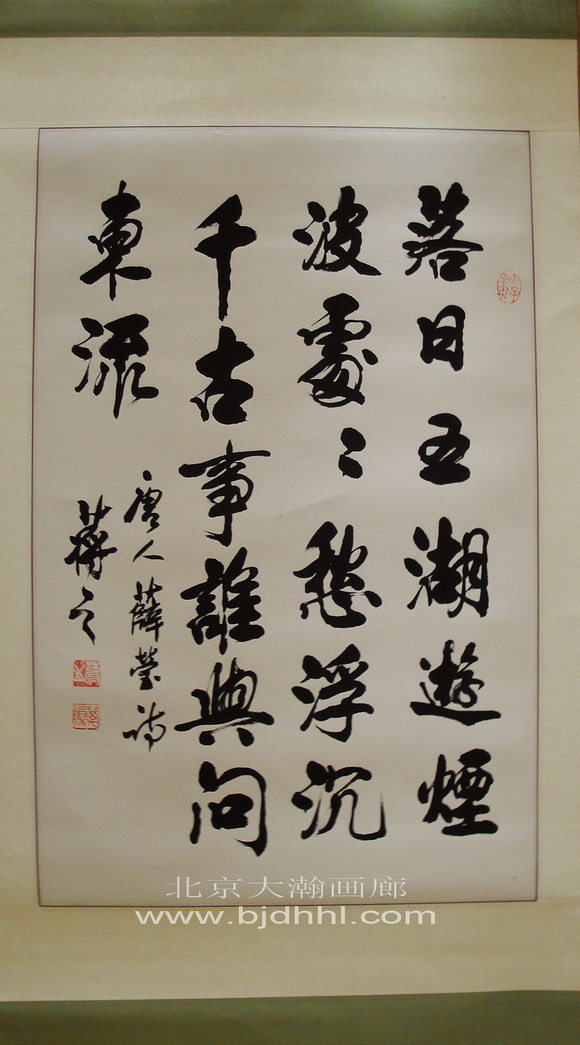 落日五湖遊煙
波處〻愁浮沉
千古事誰與問
東流
唐人薛瑩诗
北京大瀚画廊
www.bjdhhl.com